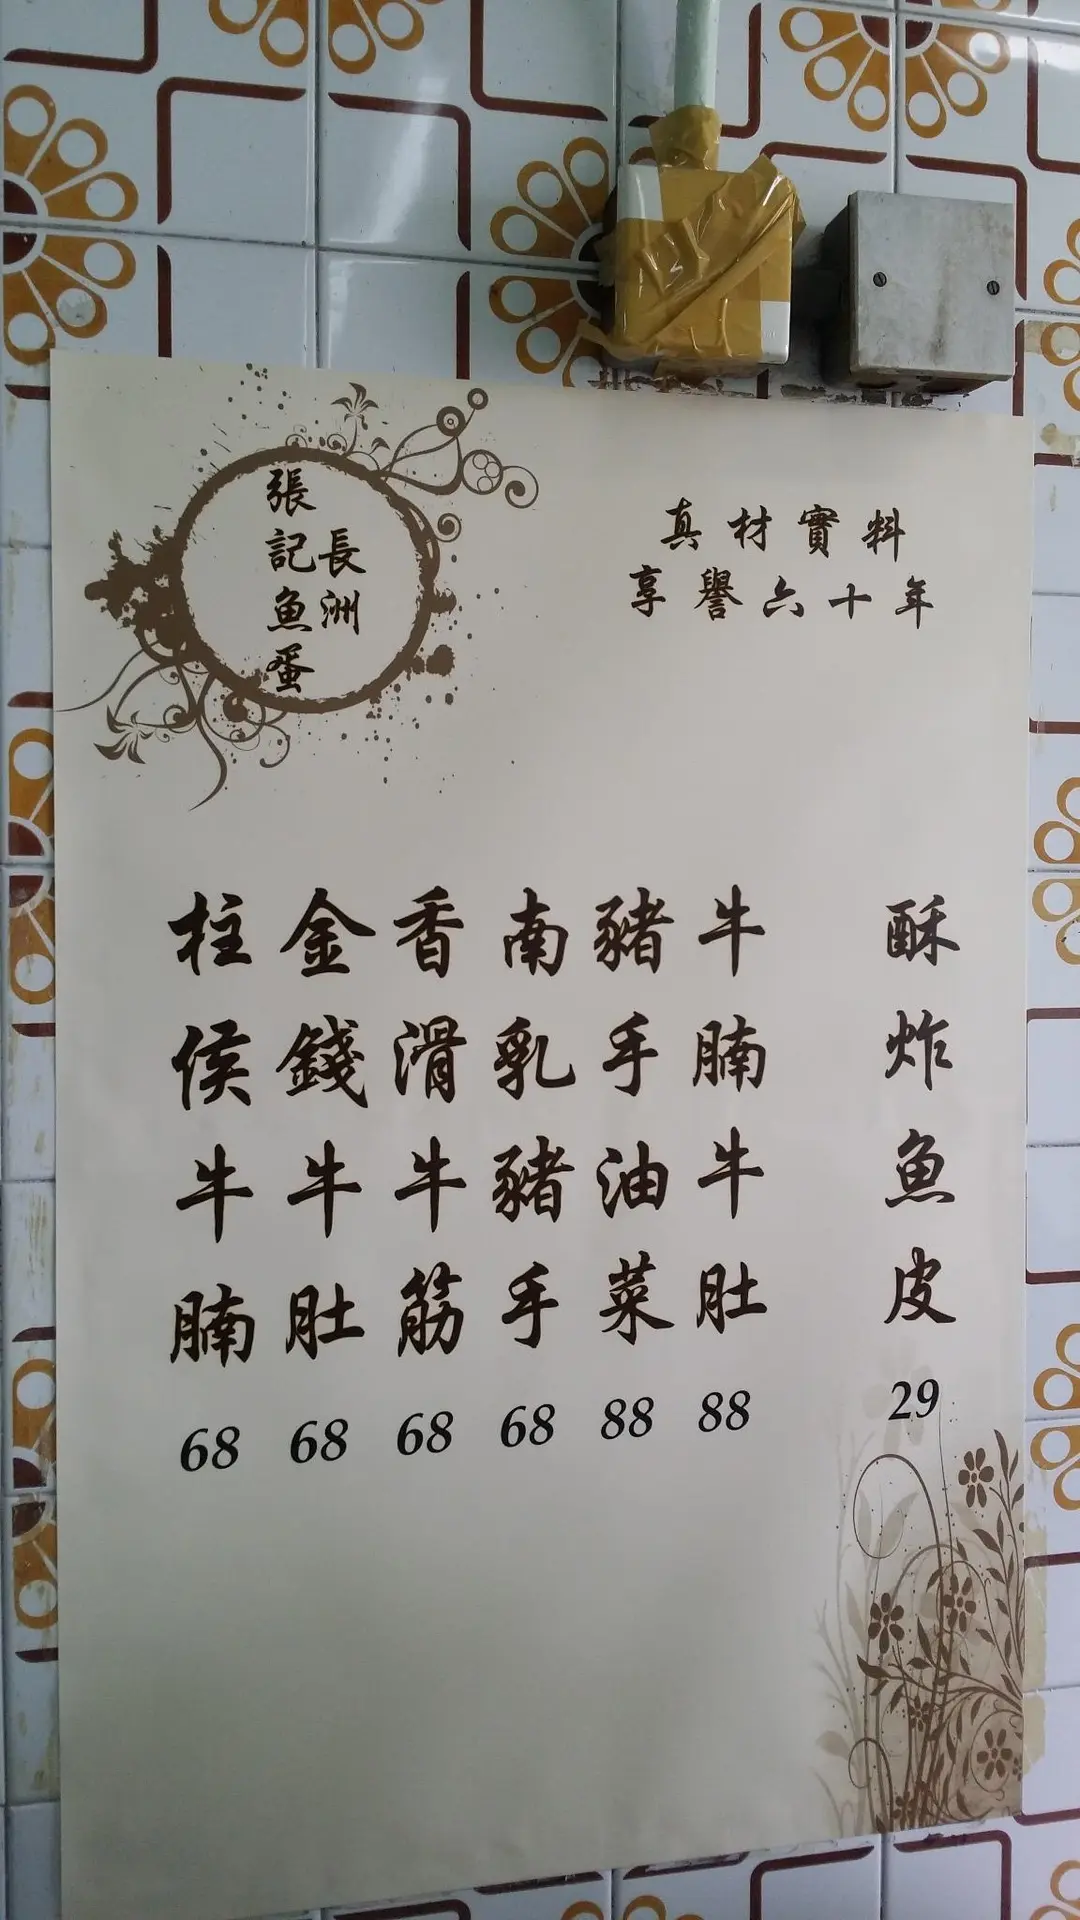 長洲
張記魚蛋
真材實料
享譽六十年
酥炸魚皮
29
牛腩牛肚
88
豬手油菜
88
南乳豬手
68
香滑牛筋
68
金錢牛肚
68
柱侯牛腩
68